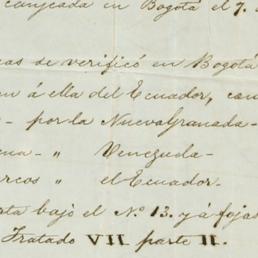 canjeada en Bogotá el 7.
as se verificó en Bogotá
n á ella del Ecuador, can
- por la Nueva Granada -
na - " Venezuela -
rcos " el Ecuador -
ta bajó el N.o 13. y á fojas
Tratado VII parte II.